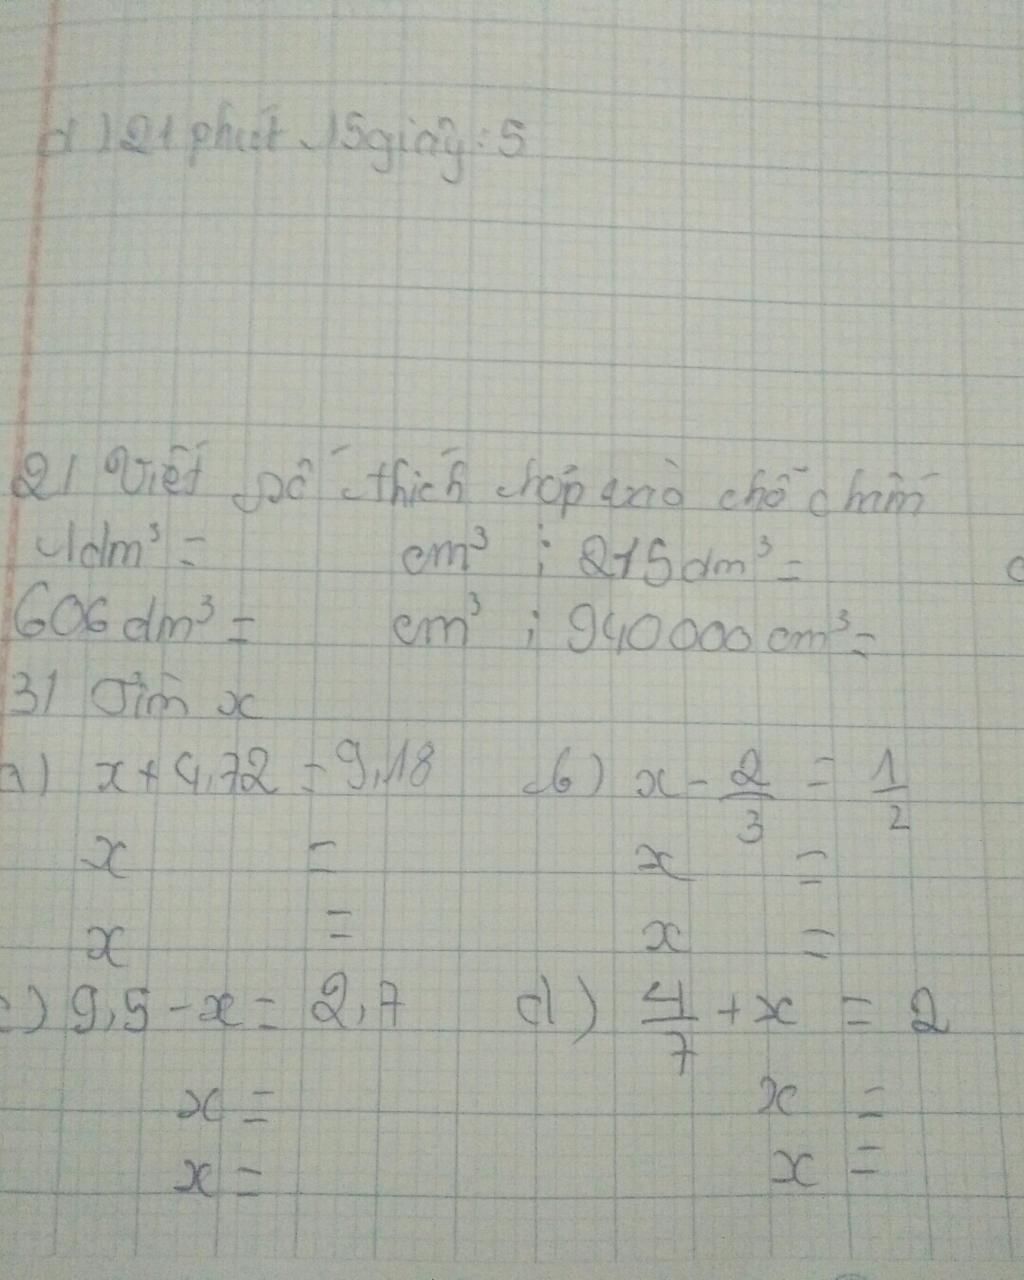 d) 21 phút 15 giây : 5
2/ Viết số thích hợp vào chỗ chấm
1dm³ = cm³ ; 215dm³ =
606dm³ = cm³ ; 940000cm³ =
3/ Tìm x
a) x + 4,72 = 9,18 b) x - 2/3 = 1/2
x = x =
x = x =
c) 9,5 - x = 2,7 d) 4/7 + x = 2
x = x =
x = x =